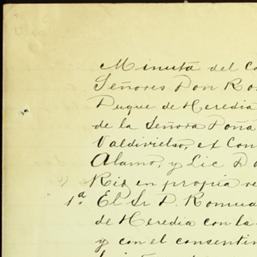 Minuta del Co
Señores Don Ro
Duque de Heredia
de la Señora Doña
Valdivielso, el Con
Alamo, y Lic D
Rio en propia re
1ª El Sr D. Romua
de Heredia con la
y con el consentin